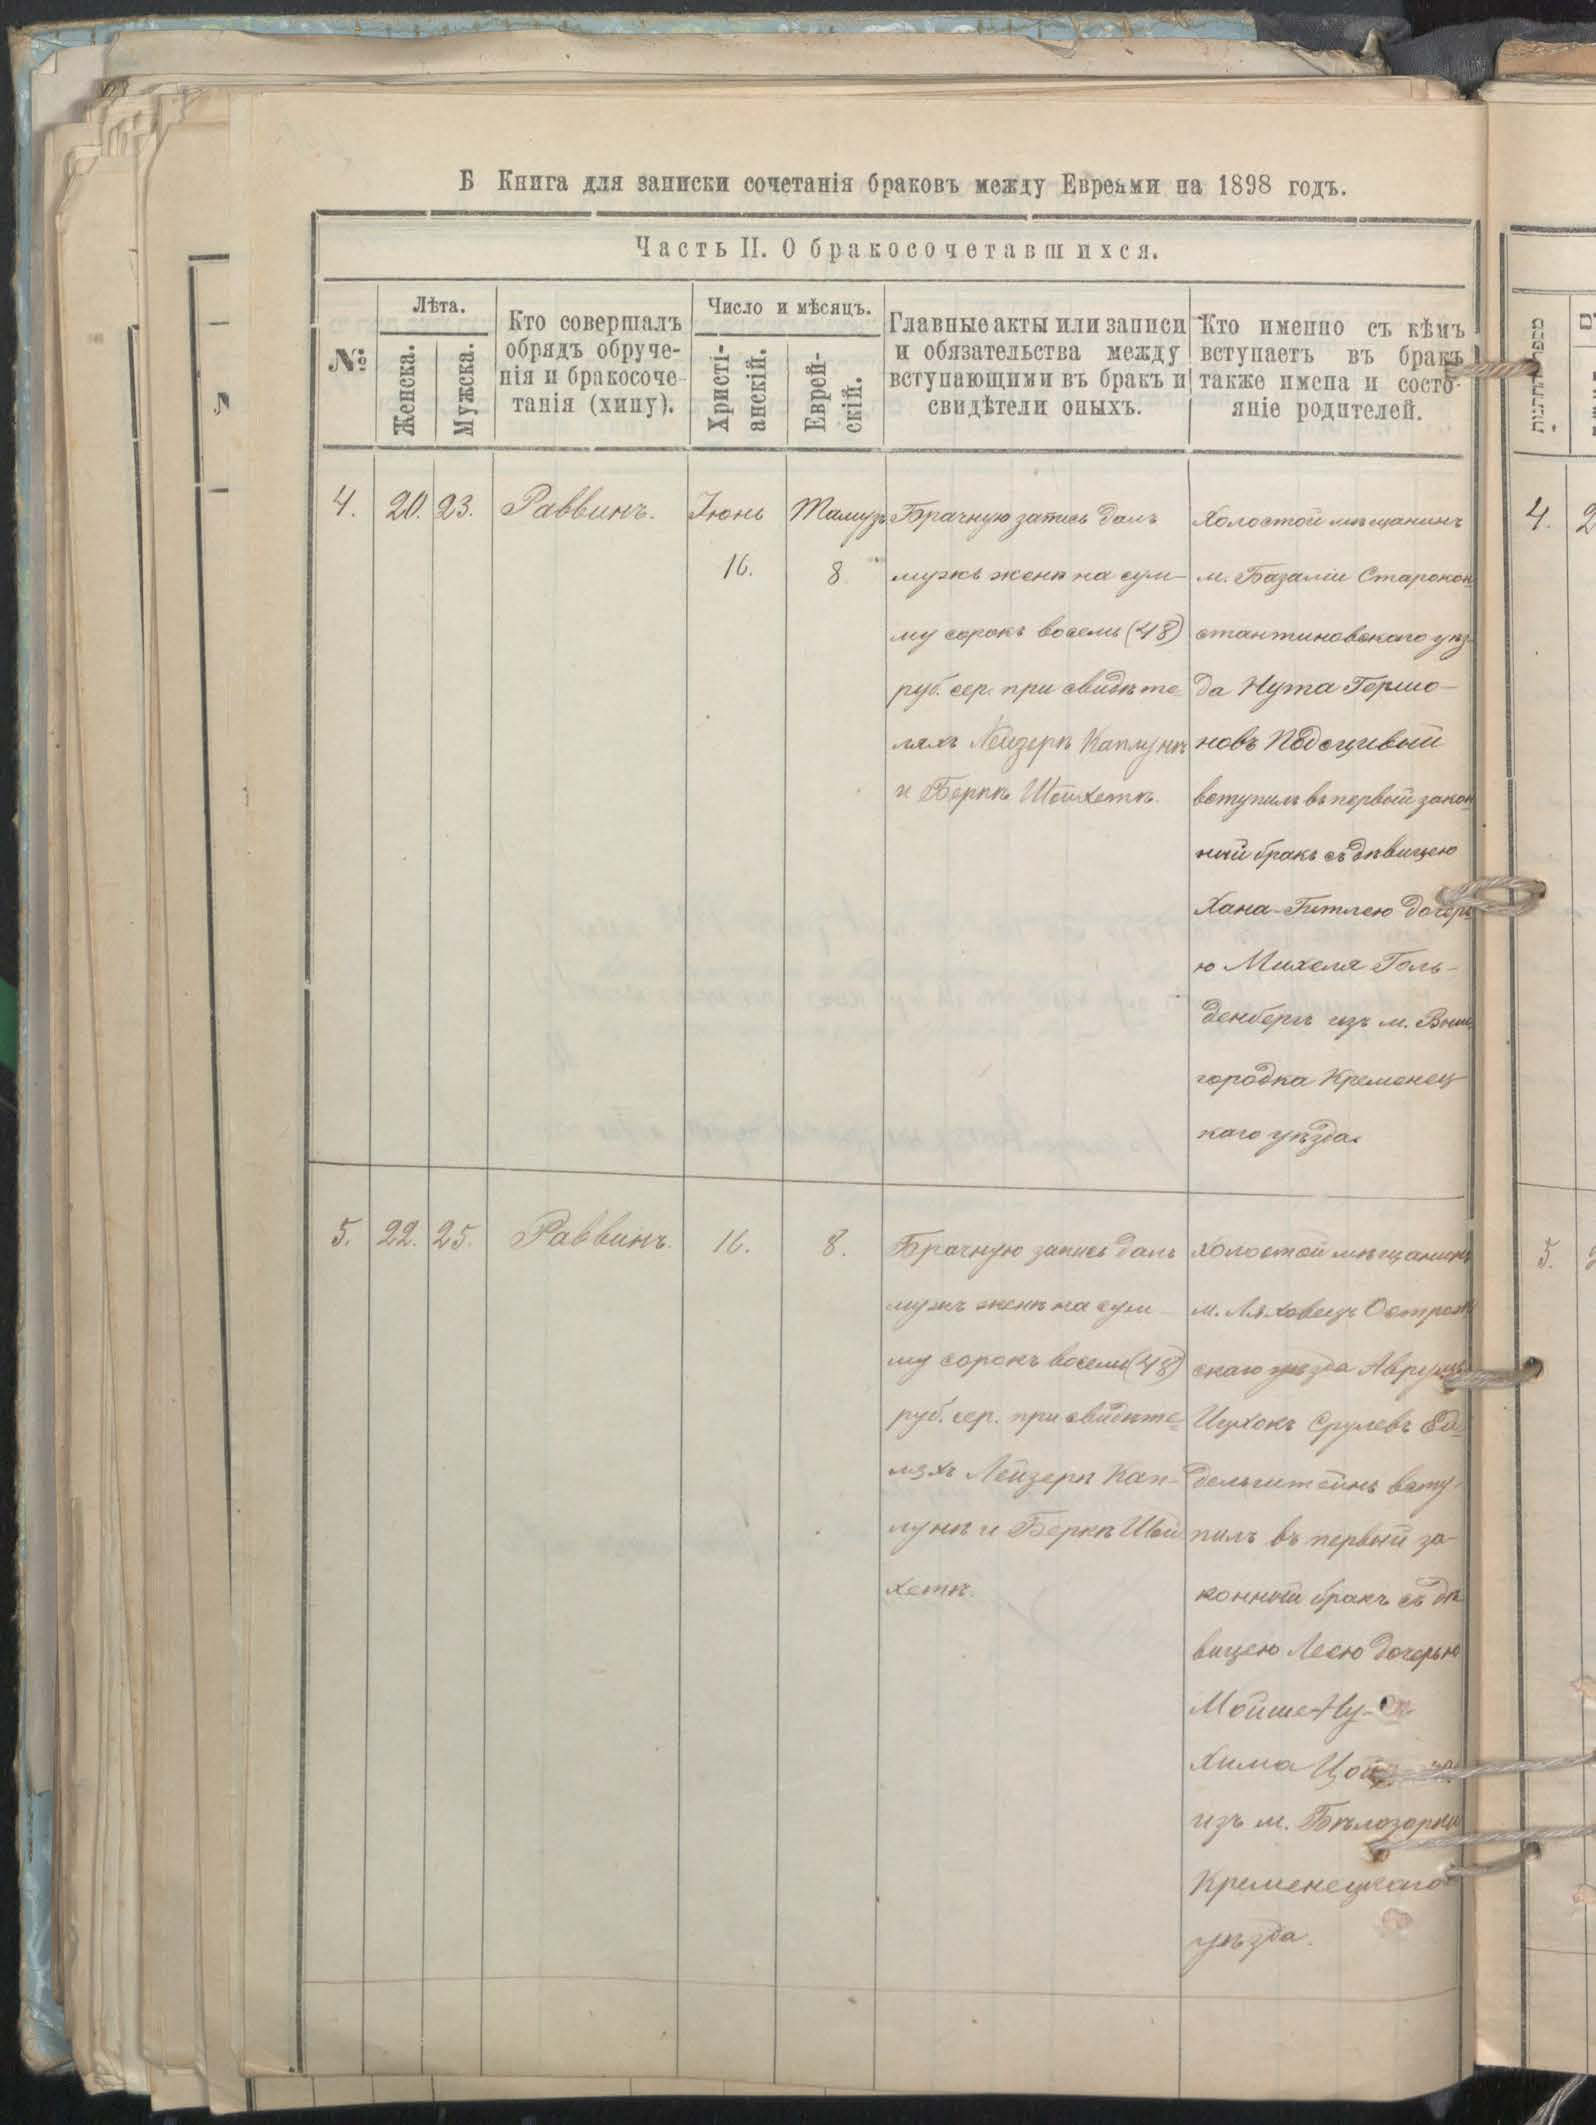 Б Книга для записки сочетанія браковъ между Евреями на 1898 годъ.
Часть II. О бракосочетавшихся.
№
Лѣта.
Женска.
Мужска.
Кто совершалъ
обрядъ обруче-
нія и бракосоче-
танія (хипу).
Число и мѣсяцъ.
Христі-
анскій.
Еврей-
скій.
Главные акты или записи
и обязательства между
вступающими въ бракъ и
свидѣтели оныхъ.
Кто именно съ кѣмъ
вступаетъ въ бракъ
также имена и состо-
яніе родителей.
4. 20. 23. Раввинъ. Іюнь 16. Тамузъ 8
Брачную запись далъ
мужъ женѣ на сум-
му сорокъ восемь (48)
руб. сер. при свидѣте-
ляхъ Лейзерѣ Каплунѣ
и Беркѣ Шойхетѣ.
Холостой мѣщанинъ
м. Базаліи Старокон-
стантиновскаго уѣз-
да Нута Гершо-
новъ Подецивый
вступилъ въ первый закон-
ный бракъ съ дѣвицею
Хана-Гитлею дочерь-
ю Михеля Голь-
денбергъ изъ м. Выш
городка Кременец
каго уѣзда.
5. 22. 25. Раввинъ. 16. 8.
Брачную запись далъ
мужъ женѣ на сум-
му сорокъ восемь (48)
руб. сер. при свидѣте-
ляхъ Лейзерѣ Кап-
лунѣ и Беркѣ Шой
хетѣ.
Холостой мѣщанинъ
м. Ляховецъ Острож
скаго уѣзда Аврумъ
Ицхокъ Срулевъ Ед-
дельштейнъ всту-
пилъ въ первый за-
конный бракъ съ дѣ
вицею Лесю дочерью
Мойше-Ну-
хима
изъ м. Бѣлозорки
Кременецкаго
уѣзда.
4.
5.